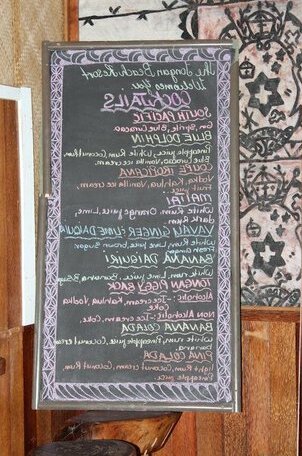 The Tongan Beach Resort
Welcomes You
COCKTAILS
SOUTH PACIFIC
Gin, Sprite, Blue Curacao
BLUE DOLPHIN
Pineapple juice, White Rum, Coconut Rum,
Blue Curacao, Vanilla ice cream
COUPE TROPICANA
Vodka, Kahlua, Vanilla ice cream,
Fruit juice
MAI TAI
White Rum, Orange juice, Lime,
Dark Rum
VAVAU GINGER LIME DAIQUIRI
White Rum, Lime, Brown Sugar
Fresh Ginger
BANANA DAIQUIRI
White Rum, Lime, Banana,
TONGAN PIGGY BACK
Alcoholic:- Ice cream, Kahlua, Vodka
Coke
Non Alcoholic:- Ice cream, Coke,
BANANA COLADA
White rum, Pineapple juice, Coconut cream
banana
PINA COLADA
Light Rum, Coconut cream, Coconut Rum,
Pineapple juice